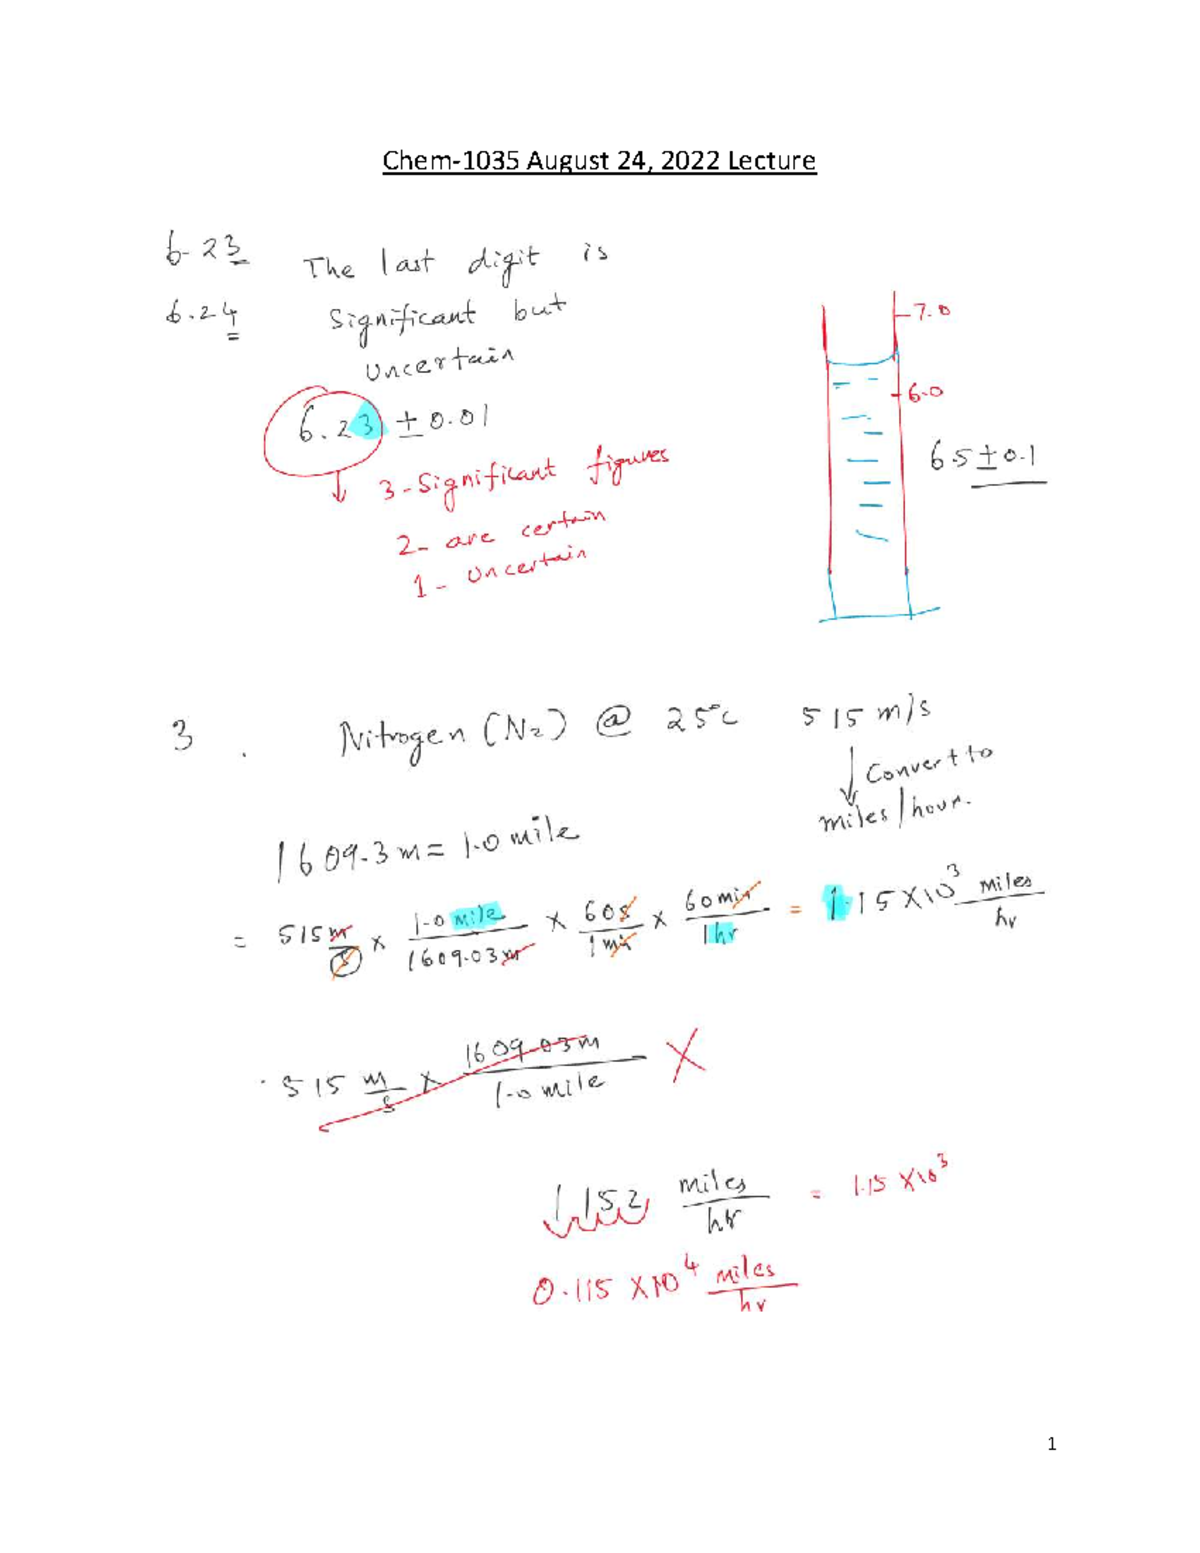 Chem-1035 August 24, 2022 Lecture
6.23 The last digit is
6.24 Significant but
Uncertain
6.23 ± 0.01
3-Significant figures
2- are certain
1- Uncertain
7.0
6.0
6.5 ± 0.1
3. Nitrogen (N₂) @ 25°C 515 m/s
Convert to
miles/hour.
1609.3 m = 1.0 mile
= 515 m/s × 1.0 mile/1609.03 m × 60 s/1 min × 60 min/1 hr = 1.15 × 10³ miles/hr
515 m/s × 1609.03 m/1.0 mile X
1152 miles/hr = 1.15 × 10³
0.115 × 10⁴ miles/hr
1